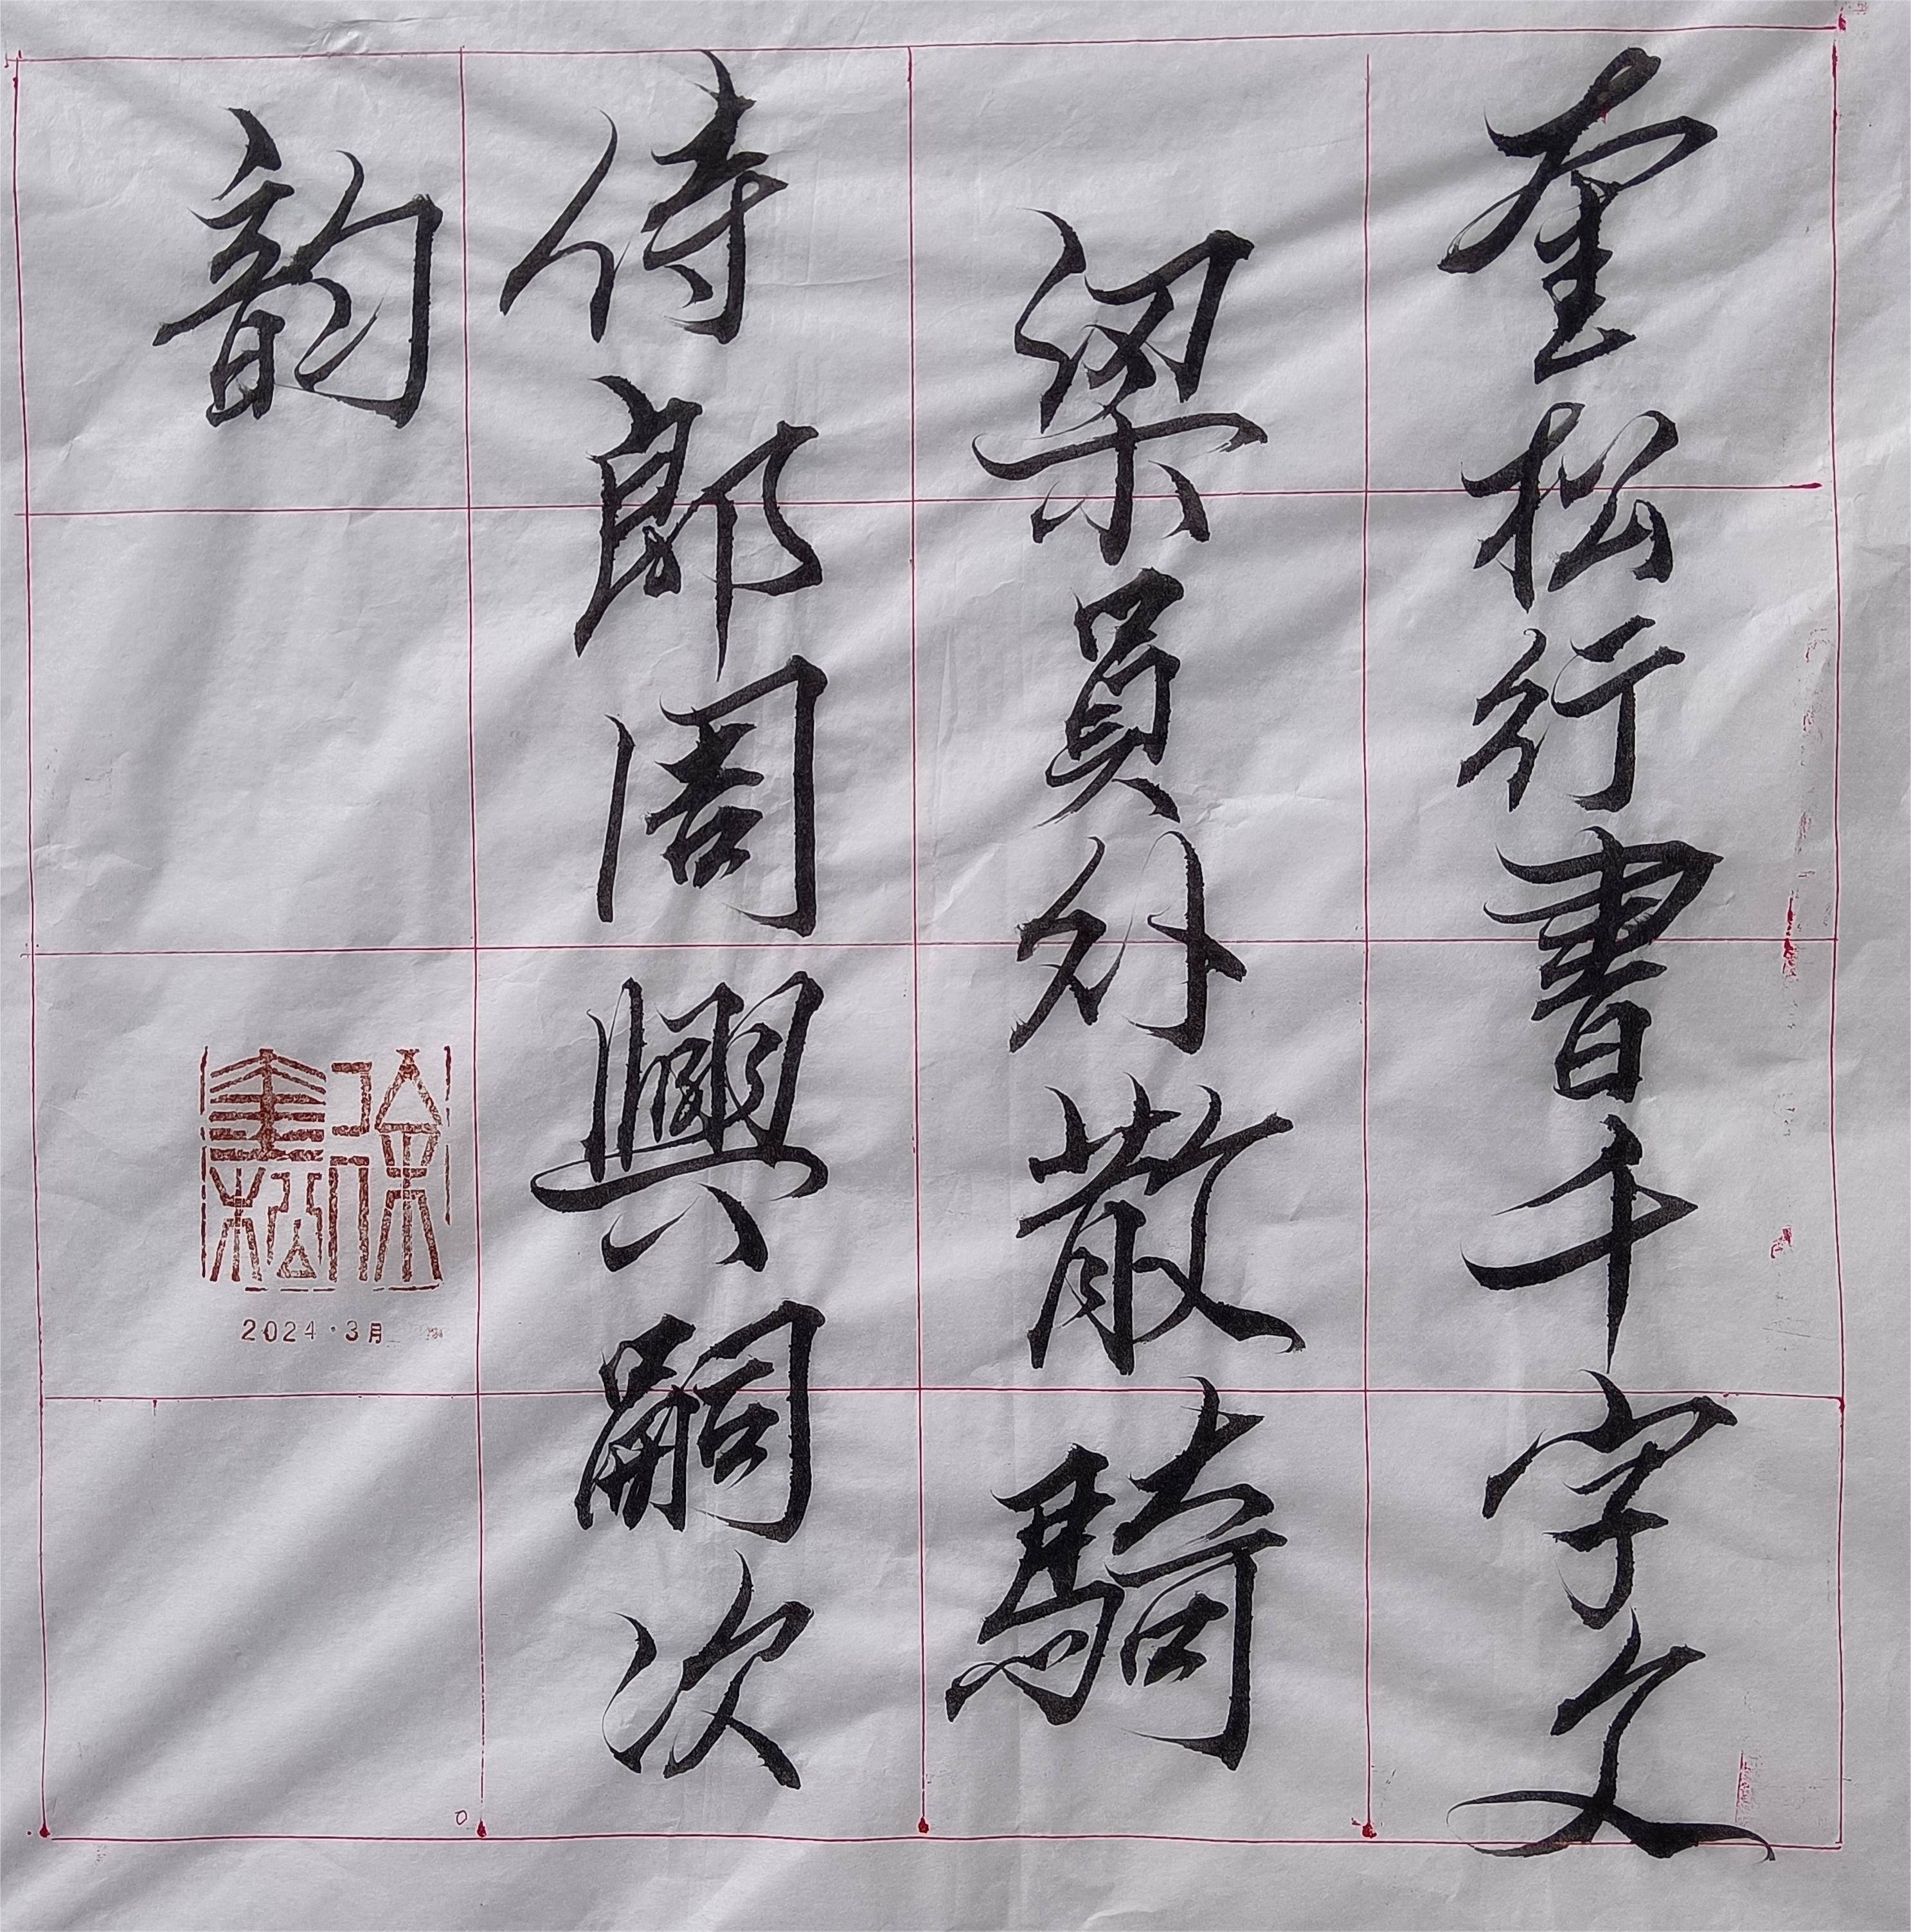 奎松行書千字文
梁員外散騎
侍郎周興嗣次
韵
徐奎松
2024·3月